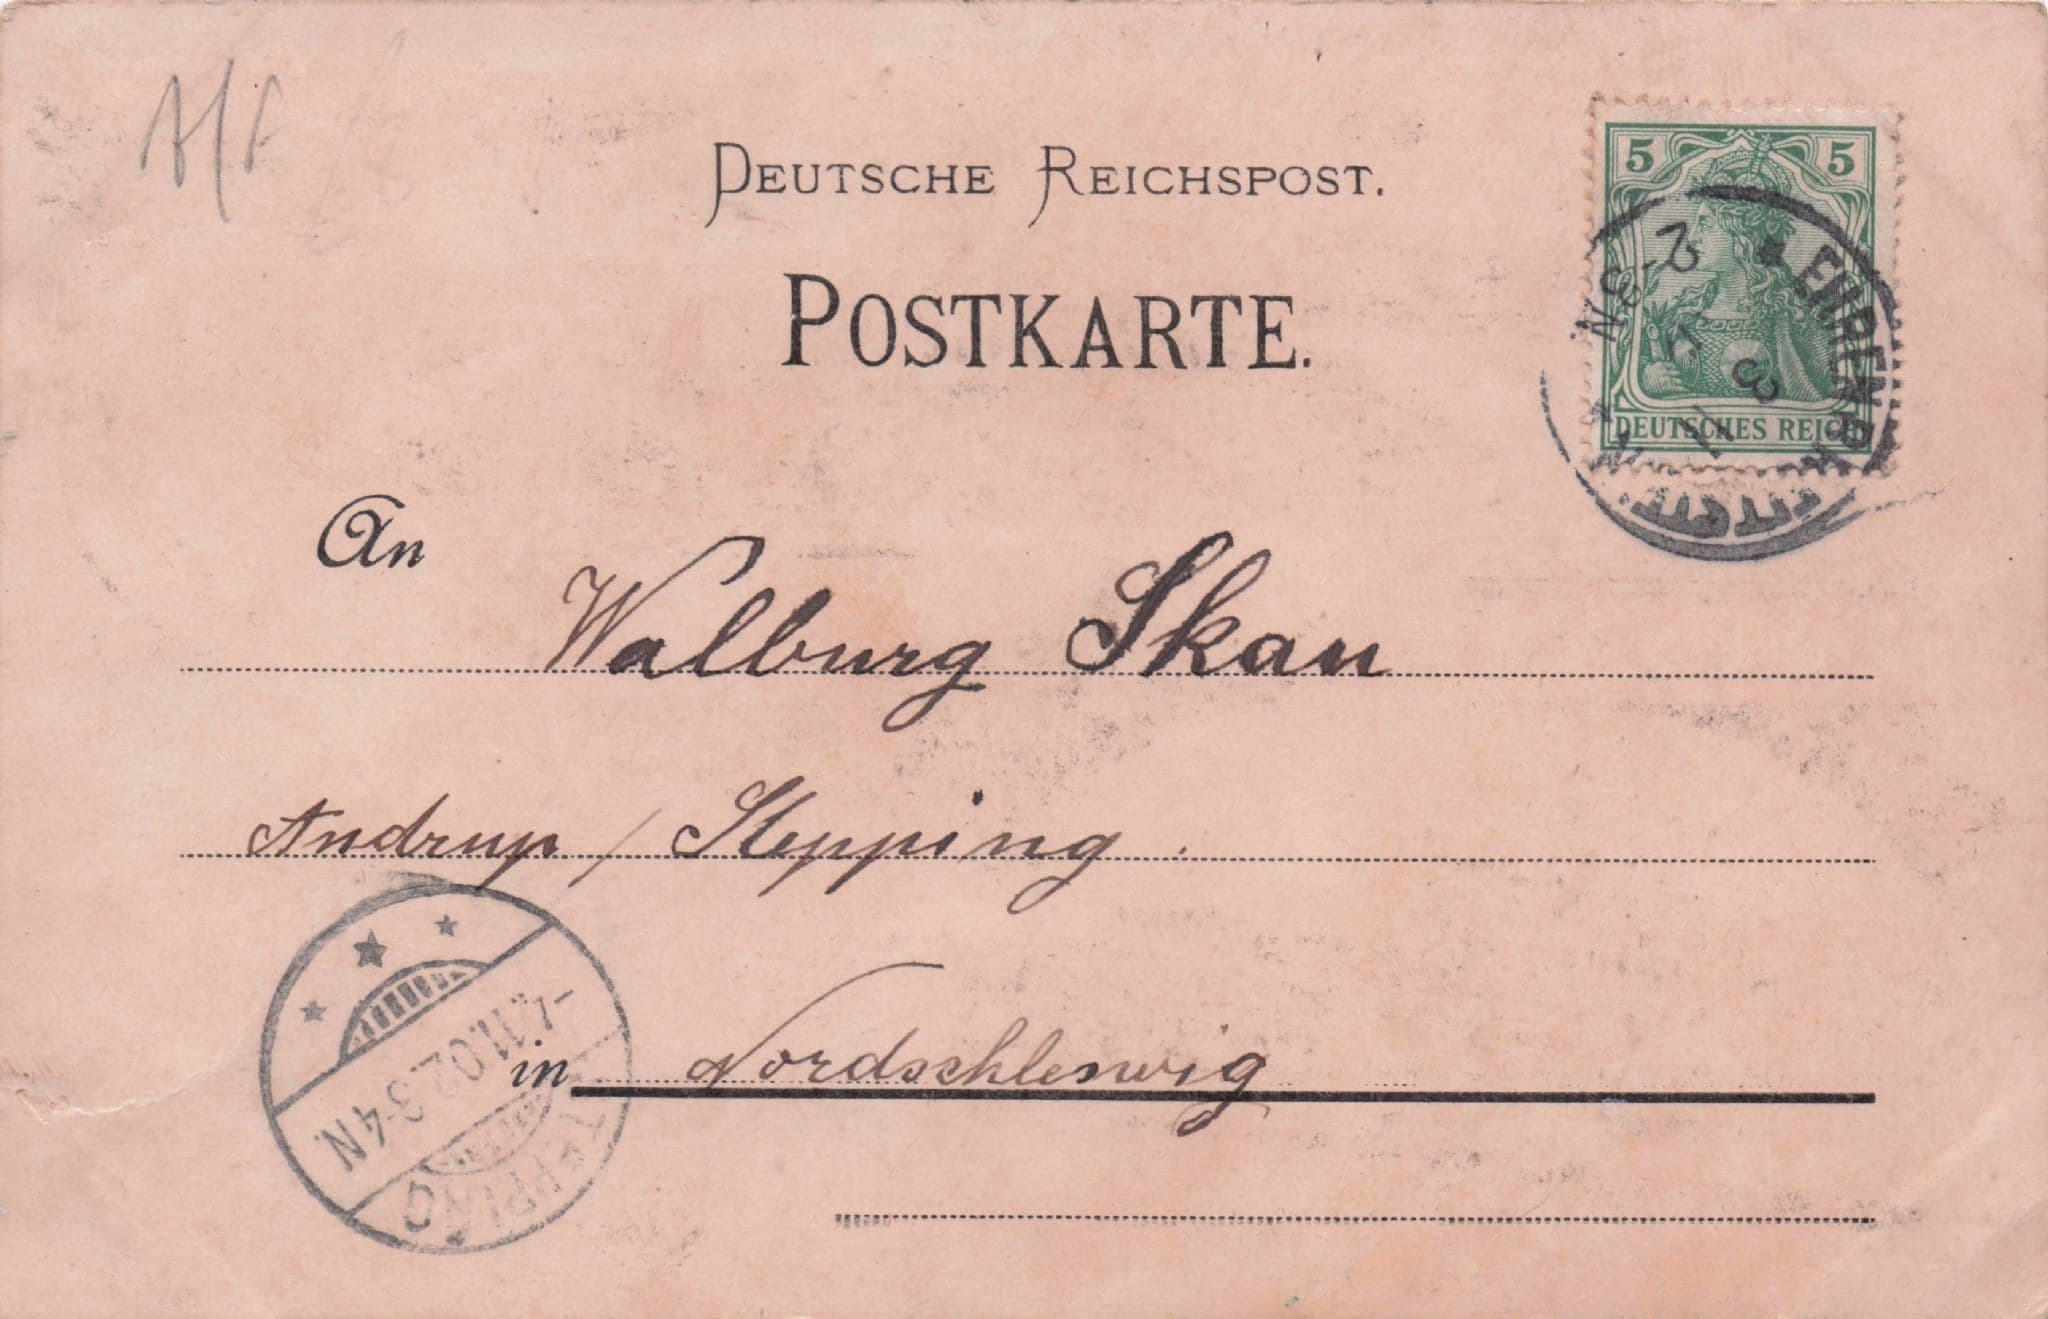 DEUTSCHE REICHSPOST.
POSTKARTE.
5 5
DEUTSCHES REICH
2-3N
3 11
An Walburg Skau
Andrup / Stepping.
in Nordschleswig
STEPPING
-4.11.02.3-4N.